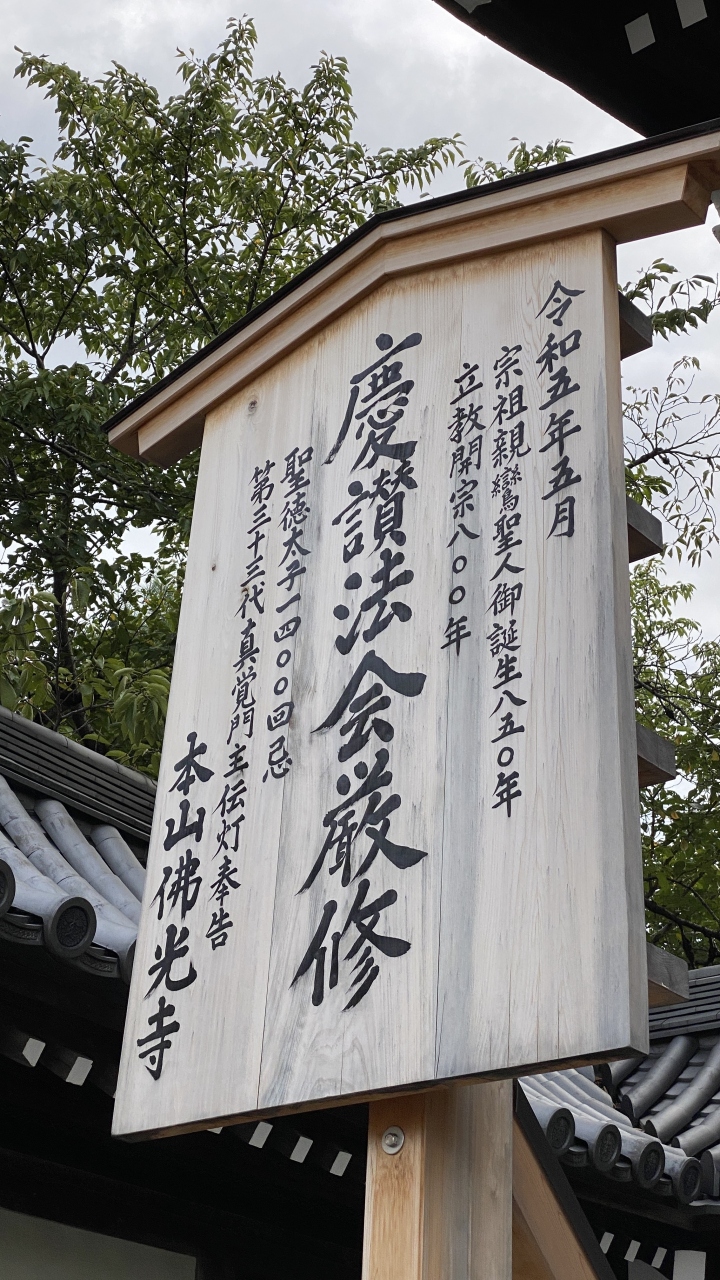 令和五年五月
宗祖親鸞聖人御誕生八五〇年
立教開宗八〇〇年
慶讃法会厳修
聖徳太子一四〇〇回忌
第三十三代真覚門主伝灯奉告
本山佛光寺